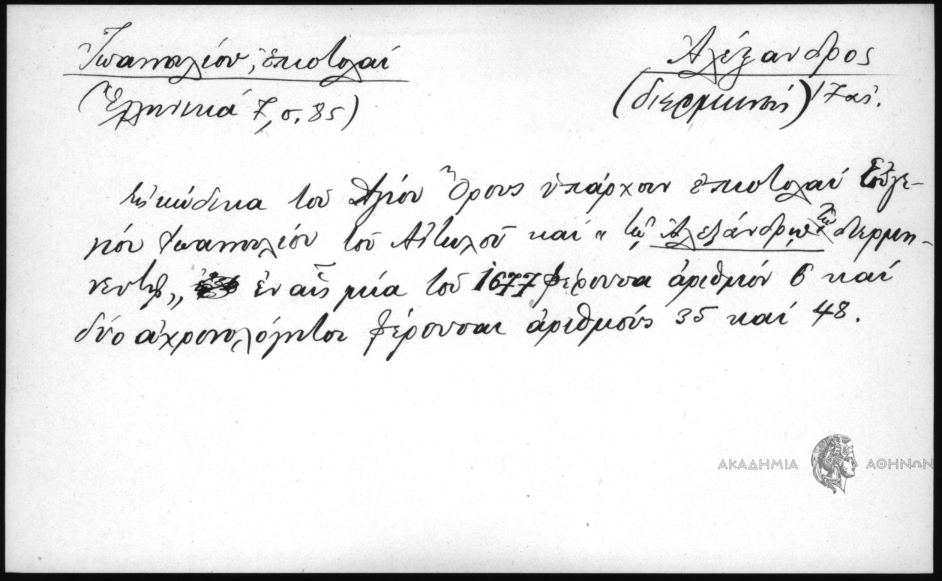 Ἰωαννουλίου, ἐπιστολαί
(Ἑλληνικά 7, σ. 85)
Ἀλέξανδρος
(διερμηνεύς) 17 αἰ.
κώδικα τοῦ Ἁγίου Ὄρους ὑπάρχουν ἐπιστολαί Εὐγε-
νίου Ἰωαννουλίου τοῦ Αἰτωλοῦ καί "τῷ Ἀλεξάνδρῳ τῷ διερμη-
νευτῇ" ἐν αἷς μία τοῦ 1677 φέρουσα ἀριθμόν 6 καί
δύο ἀχρονολόγητοι φέρουσαι ἀριθμούς 35 καί 48.
ΑΚΑΔΗΜΙΑ ΑΘΗΝΩΝ